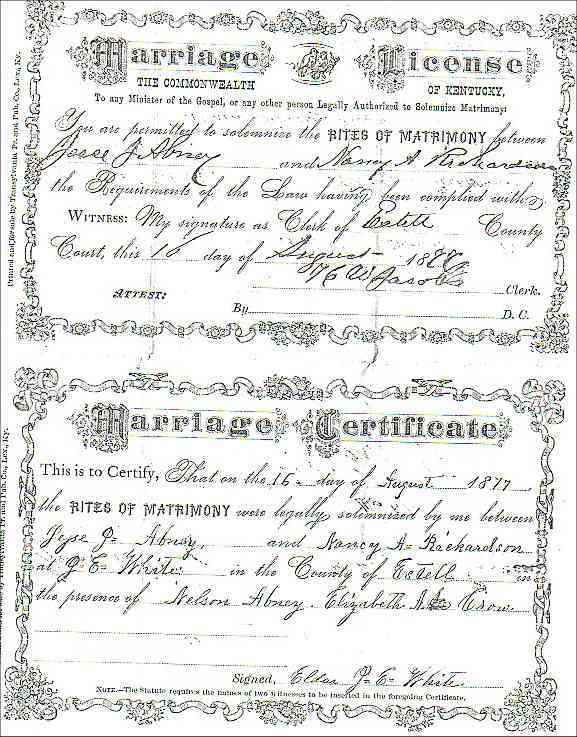 Marriage License
THE COMMONWEALTH OF KENTUCKY,
To any Minister of the Gospel, or any other person Legally Authorized to Solemnize Matrimony:
You are permitted to solemnize the RITES OF MATRIMONY between
Jesse J. Abney and Nancy A Richardson
the Requirements of the Law having been complied with.
WITNESS: My signature as Clerk of Estell County
Court, this 16 day of August 1877
Jacobs Clerk.
ATTEST:
By D. C.
Printed and for sale by Transylvania Pr. and Pub. Co., Lex., Ky.
Marriage Certificate
This is to Certify, That on the 16- day of August 1877
the RITES OF MATRIMONY were legally solemnized by me between
Jesse J= Abney, and Nancy A= Richardson
at J= E= White in the County of Estell in
the presence of Nelson Abney. Elizabeth A. Crow
Signed, Elder J= E= White.
NOTE.—The Statute requires the names of two witnesses to be inserted in the foregoing Certificate.
Transylvania Pr. and Pub. Co., Lex., Ky.